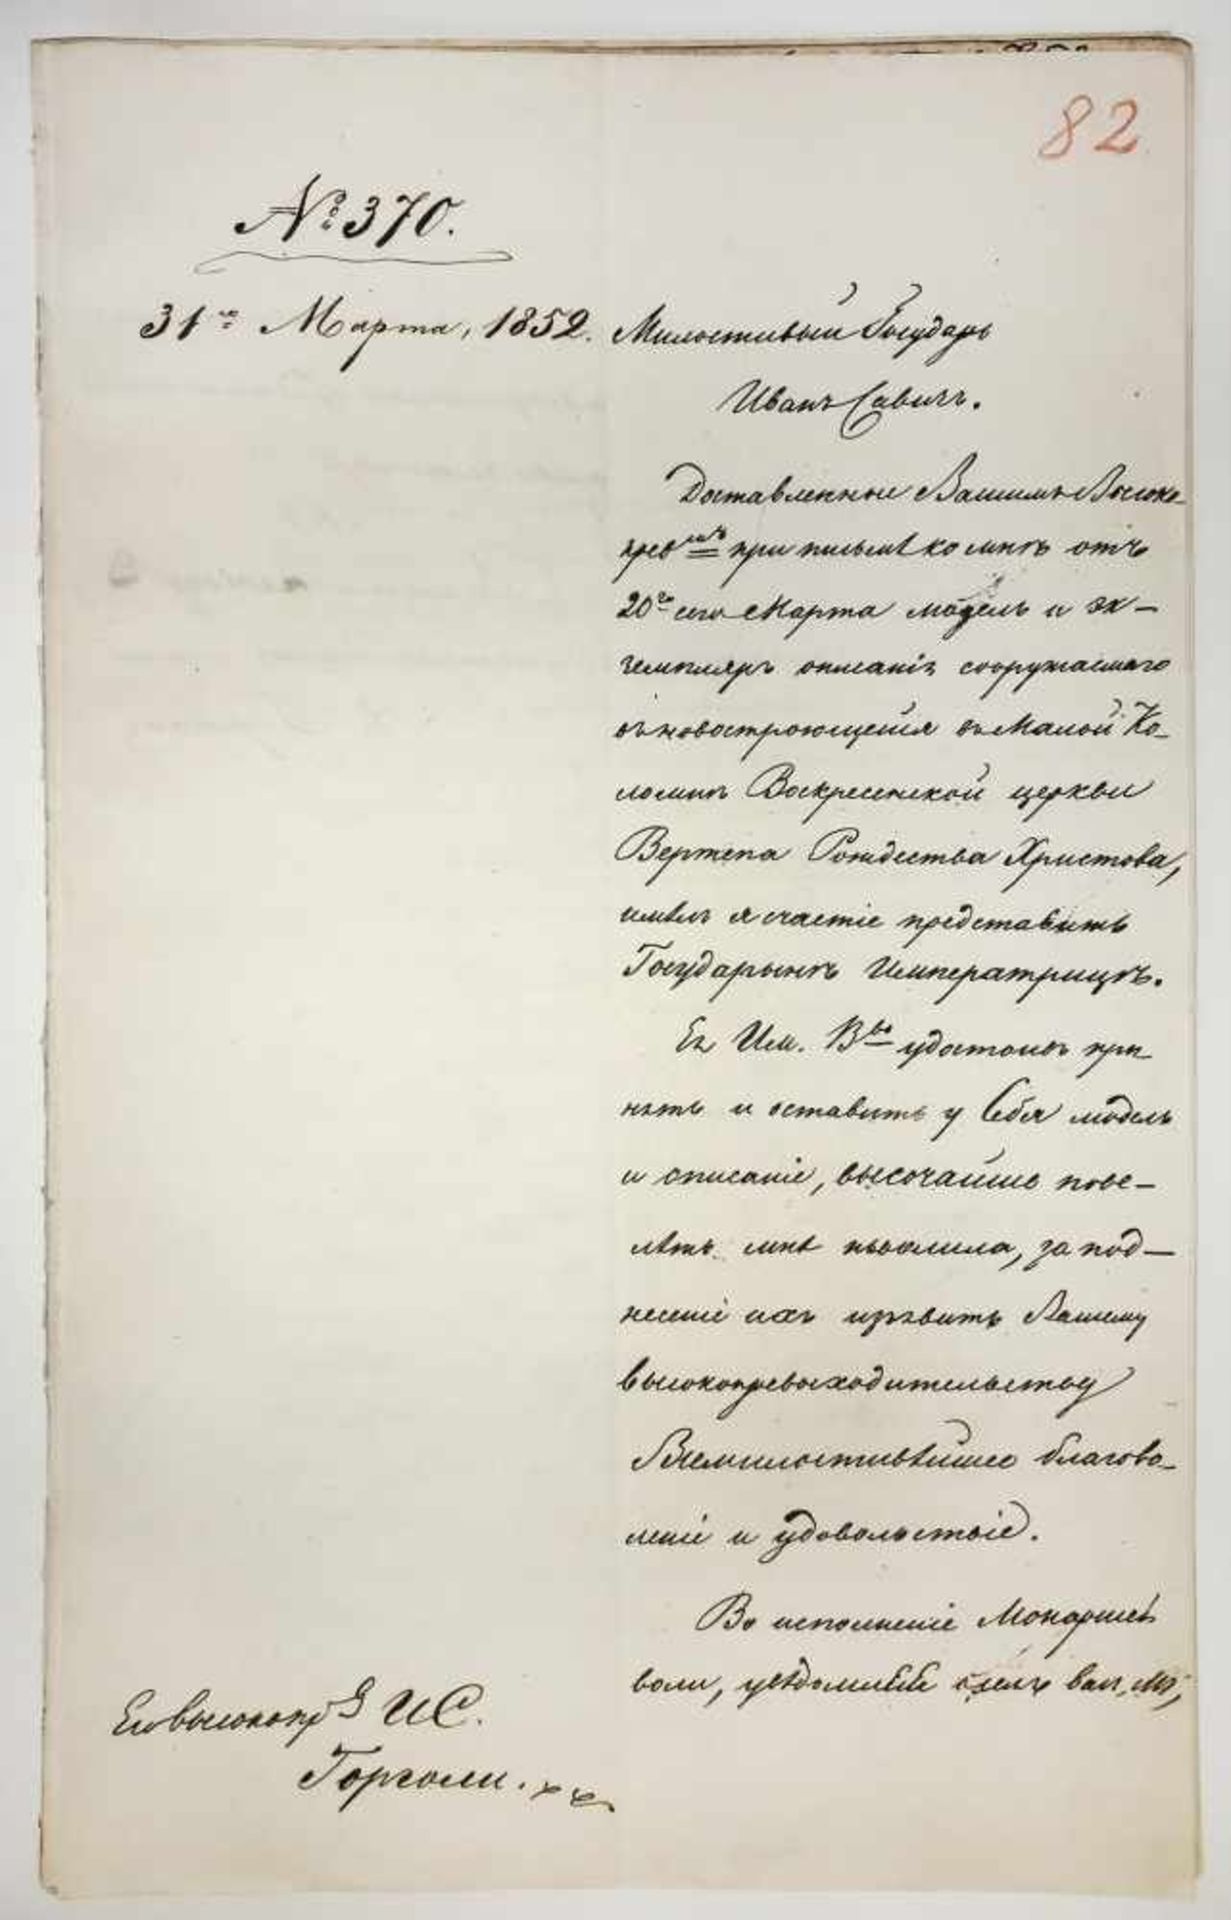 82
№ 370.
31го Марта, 1852.
Милостивый Государь
Иванъ Савичъ.
Доставленные Вашимъ Высоко-
прев-мъ при письмѣ ко мнѣ отъ
20го сего Марта модель и эк-
земпляръ описанія сооружаемаго
въ новостроющейся въ Малой Ко-
ломнѣ Воскресенской церкви
Вертепа Рождества Христова,
имѣлъ я счастіе представить
Государынѣ Императрицѣ.
Ея Им. В-во удостоивъ при-
нять и оставить у Себя модель
и описаніе, высочайше пове-
лѣть мнѣ изволила, за под-
несеніе ихъ изъявить Вашему
высокопревосходительству
Всемилостивѣйшее благово-
леніе и удовольствіе.
Во исполненіе Монаршей
воли, увѣдомляя о семъ Вас, Мг,
Его высокопр. И С.
Горголи.